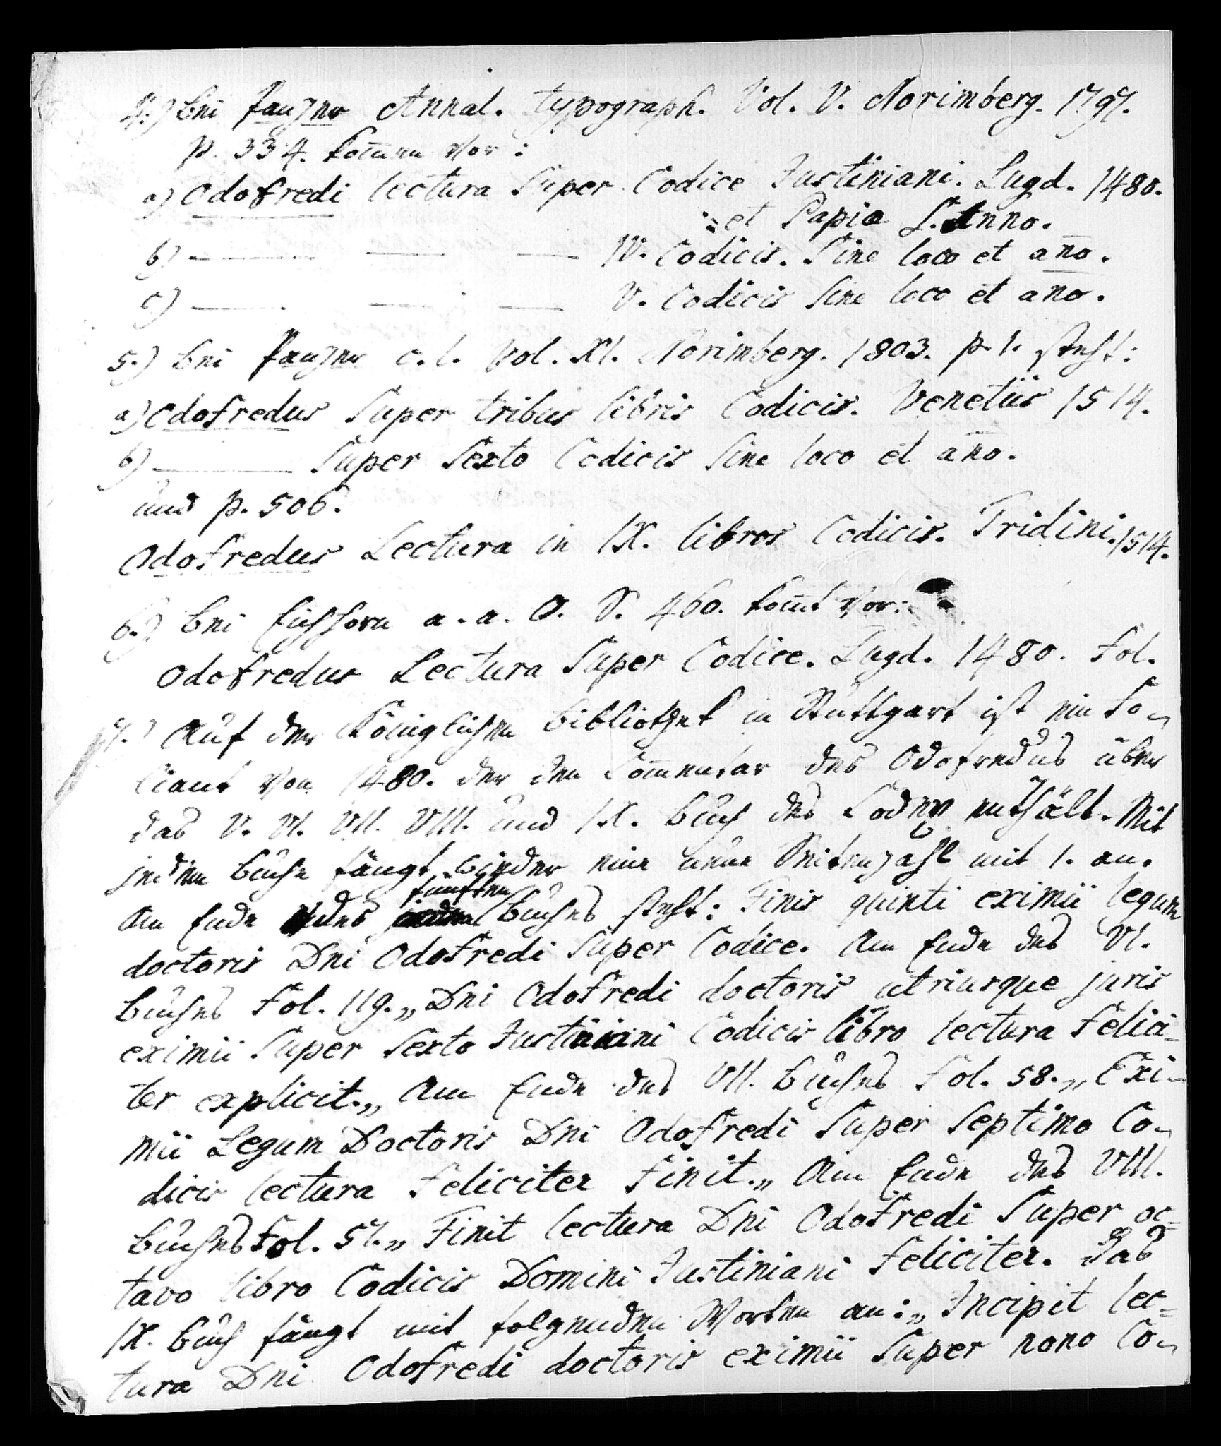 4.) Bei Panzer Annal. typograph. Vol. V. Norimberg. 1797.
p. 334. kom̄en vor:
a) Odofredi lectura Super Codice Justiniani. Lugd. 1480.
et Papia S. Anno.
b) — — — IV. Codicis. Sine loco et an̄o.
c) — — — V. Codicis Sine loco et ano.
5.) Bei Panzer c. l. Vol. XI. Norimberg. 1803. p. 1. steht:
a) Odofredus Super tribus libris Codicis. Venetiis 1514.
b) — Super Sexto Codicis Sine loco et an̄o.
und p. 506.
Odofredus Lectura in IX. libros Codicis. Tridini. 1514.
6.) Bei Eichhorn a. a. O. S. 460. kom̄t vor:
Odofredus Lectura Super Codice. Lugd. 1480. Fol.
7.) Auf der Königlichen Bibliothek in Stuttgart ist ein Fo-
liant von 1480. der den Com̄entar des Odofredus über
das V. VI. VII. VIII. und IX. Buch des Codex enthält. Mit
jedem Buche fängt wieder eine neue Seitenzahl mit 1. an.
Am Ende des fünften Buches steht: Finis quinti eximii legum
doctoris Dni Odofredi Super Codice. Am Ende des VI.
Buches Fol. 119. „Dni Odofredi doctoris utriusque juris
eximii Super Sexto Justiniani Codicis libro lectura Felici-
ter explicit.„ Am Ende des VII. Buches Fol. 58. „Exi-
mii Legum Doctoris Dni Odofredi Super Septimo Co-
dicis lectura Feliciter Finit.„ Am Ende des VIII.
Buches Fol. 57. „Finit lectura Dni Odofredi Super oc-
tavo libro Codicis Domini Justiniani Feliciter. Das
IX. Buch fängt mit folgenden Worten an: „Incipit lec-
tura Dni Odofredi doctoris eximii Super nono Co-